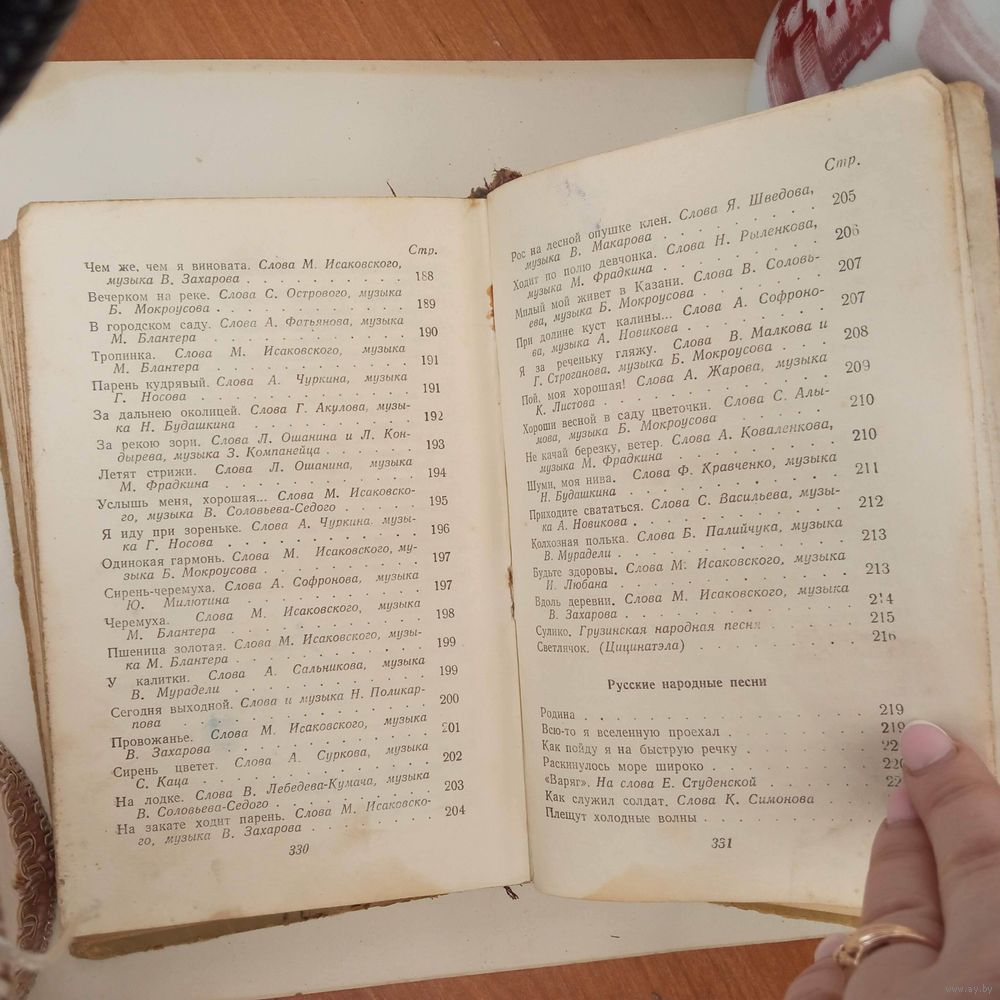 Стр.
Чем же, чем я виновата. Слова М. Исаковского,
музыка В. Захарова . . . . . . . . . 188
Вечерком на реке. Слова С. Острового, музыка
Б. Мокроусова . . . . . . . . . . 189
В городском саду. Слова А. Фатьянова, музыка
М. Блантера . . . . . . . . . . 190
Тропинка. Слова М. Исаковского, музыка
М. Блантера . . . . . . . . . . 191
Парень кудрявый. Слова А. Чуркина, музыка
Г. Носова . . . . . . . . . . 191
За дальнею околицей. Слова Г. Акулова, музы-
ка Н. Будашкина . . . . . . . . . 192
За рекою зори. Слова Л. Ошанина и Л. Кон-
дырева, музыка З. Компанейца . . . . . 193
Летят стрижи. Слова Л. Ошанина, музыка
М. Фрадкина . . . . . . . . . . 194
Услышь меня, хорошая... Слова М. Исаковско-
го, музыка В. Соловьева-Седого . . . . . 195
Я иду при зореньке. Слова А. Чуркина, музы-
ка Г. Носова . . . . . . . . . . 196
Одинокая гармонь. Слова М. Исаковского, му-
зыка Б. Мокроусова . . . . . . . . 197
Сирень-черемуха. Слова А. Софронова, музыка
Ю. Милютина . . . . . . . . . . 197
Черемуха. Слова М. Исаковского, музыка
М. Блантера . . . . . . . . . . 198
Пшеница золотая. Слова М. Исаковского, музы-
ка М. Блантера . . . . . . . . . 199
У калитки. Слова А. Сальникова, музыка
В. Мурадели . . . . . . . . . . 199
Сегодня выходной. Слова и музыка Н. Поликар-
пова . . . . . . . . . . . 200
Провожанье. Слова М. Исаковского, музыка
В. Захарова . . . . . . . . . . 201
Сирень цветет. Слова А. Суркова, музыка
С. Каца . . . . . . . . . . . 202
На лодке. Слова В. Лебедева-Кумача, музыка
В. Соловьева-Седого . . . . . . . . 203
На закате ходит парень. Слова М. Исаковско-
го, музыка В. Захарова . . . . . . . 204
330
Стр.
Рос на лесной опушке клен. Слова Я. Шведова,
музыка В. Макарова . . . . . . . . 205
Ходит по полю девчонка. Слова Н. Рыленкова,
музыка М. Фрадкина . . . . . . . . 206
Милый мой живет в Казани. Слова В. Соловь-
ева, музыка Б. Мокроусова . . . . . . 207
При долине куст калины... Слова А. Софроно-
ва, музыка А. Новикова . . . . . . . 207
Я за реченьку гляжу. Слова В. Малкова и
Г. Строганова, музыка Б. Мокроусова . . . 208
Пой, моя хорошая! Слова А. Жарова, музыка
К. Листова . . . . . . . . . . 209
Хороши весной в саду цветочки. Слова С. Алы-
мова, музыка Б. Мокроусова . . . . . . 210
Не качай березку, ветер. Слова А. Коваленкова,
музыка М. Фрадкина . . . . . . . . 210
Шуми, моя нива. Слова Ф. Кравченко, музыка
Н. Будашкина . . . . . . . . . . 211
Приходите свататься. Слова С. Васильева, музы-
ка А. Новикова . . . . . . . . . 212
Колхозная полька. Слова Б. Палийчука, музыка
В. Мурадели . . . . . . . . . . 213
Будьте здоровы. Слова М. Исаковского, музыка
И. Любана . . . . . . . . . . 213
Вдоль деревни. Слова М. Исаковского, музыка
В. Захарова . . . . . . . . . . 214
Сулико. Грузинская народная песня . . . . 215
Светлячок. (Цицинатэла) . . . . . . . 216
Русские народные песни
Родина . . . . . . . . . . . 219
Всю-то я вселенную проехал . . . . . . 219
Как пойду я на быструю речку . . . . .
Раскинулось море широко . . . . . . 220
«Варяг». На слова Е. Студенской . . . .
Как служил солдат. Слова К. Симонова . .
Плещут холодные волны . . . . . .
331
www.ay.by